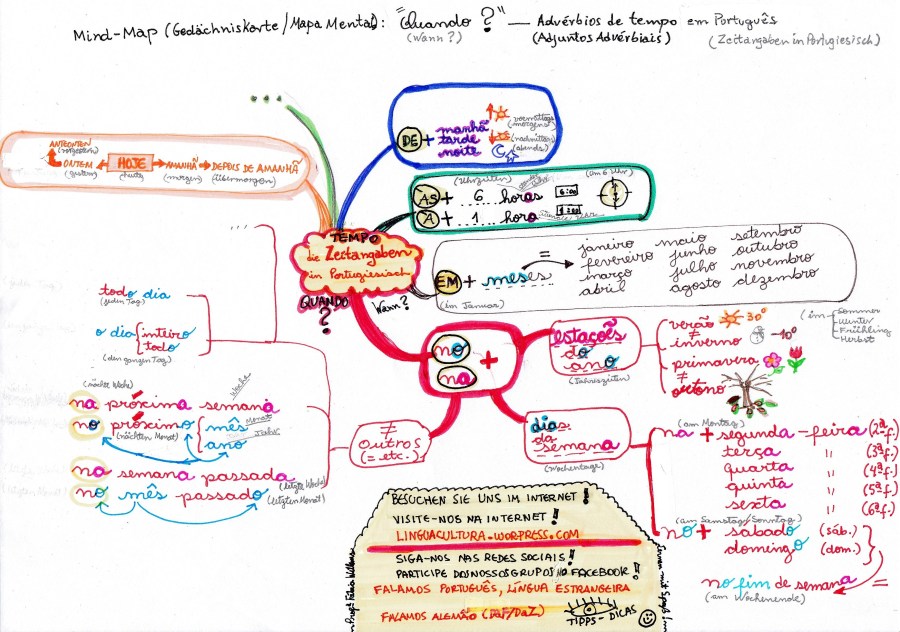 Mind-Map (Gedächniskarte/Mapa Mental): "Quando?" — Advérbios de tempo em Português
(Wann?) (Adjuntos Advérbiais) (Zeitangaben in Portugiesisch)
...
ANTEONTEM
(vorgestern)
ONTEM HOJE → AMANHÃ → DEPOIS DE AMANHÃ
(gestern) (heute) (morgen) (Übermorgen)
DE + manhã (vormittags/morgens)
tarde (nachmittags)
noite (abends)
(Uhrzeiten) (um 6 Uhr)
ÀS + ...6... horas 6:00
À + ...1... hora 1:00
TEMPO
die Zeitangaben
in Portugiesisch
QUANDO?
Wann?
EM + meses =
(im Januar)
janeiro maio setembro
fevereiro junho outubro
março julho novembro
abril agosto dezembro
no
na
+
estações
do
ano
(Jahreszeiten)
verão 30°
inverno -10°
primavera
≠
outono
(im
Sommer
Winter
Frühling
Herbst
dias
da
semana
(Wochentage)
(am Montag)
na + segunda-feira (2ª f.)
terça " (3ª f.)
quarta " (4ª f.)
quinta " (5ª f.)
sexta " (6ª f.)
(am Samstag/Sonntag)
no + sábado (sáb.)
domingo (dom.)
no fim de semana =
(am Wochenende)
≠
outros
(= etc.)
...
todo dia
(jeden Tag)
o dia inteiro
todo
(den ganzen Tag)
(nächste Woche)
na próxima semana
Woche
no próximo mês
Monat
(nächsten Monat) ano
Jahr
na semana passada
(letzte Woche)
no mês passado
(letzten Monat)
BESUCHEN SIE UNS IM INTERNET!
VISITE-NOS NA INTERNET!
LINGUACULTURA.WORPRESS.COM
SIGA-NOS NAS REDES SOCIAIS!
PARTICIPE DOS NOSSOS GRUPOS NO FACEBOOK!
FALAMOS PORTUGUÊS, LÍNGUA ESTRANGEIRA
FALAMOS ALEMÃO (DAF/DaZ)
TIPPS - DICAS